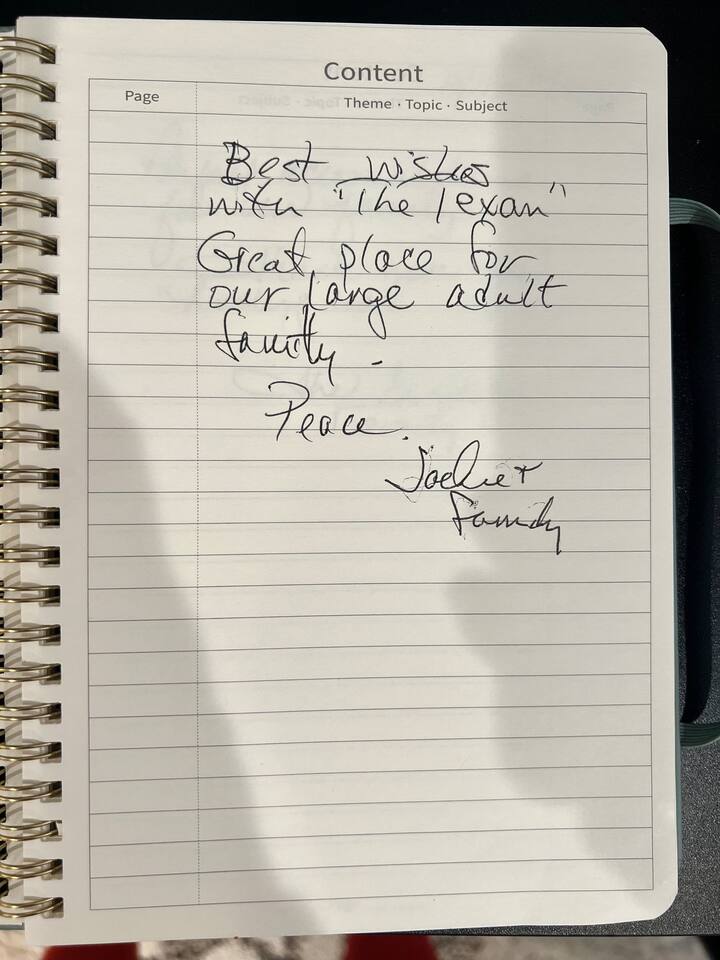 Content
Page Theme · Topic · Subject
Best wishes
with "The Texan"
Great place for
our large adult
family.
Peace.
+
family